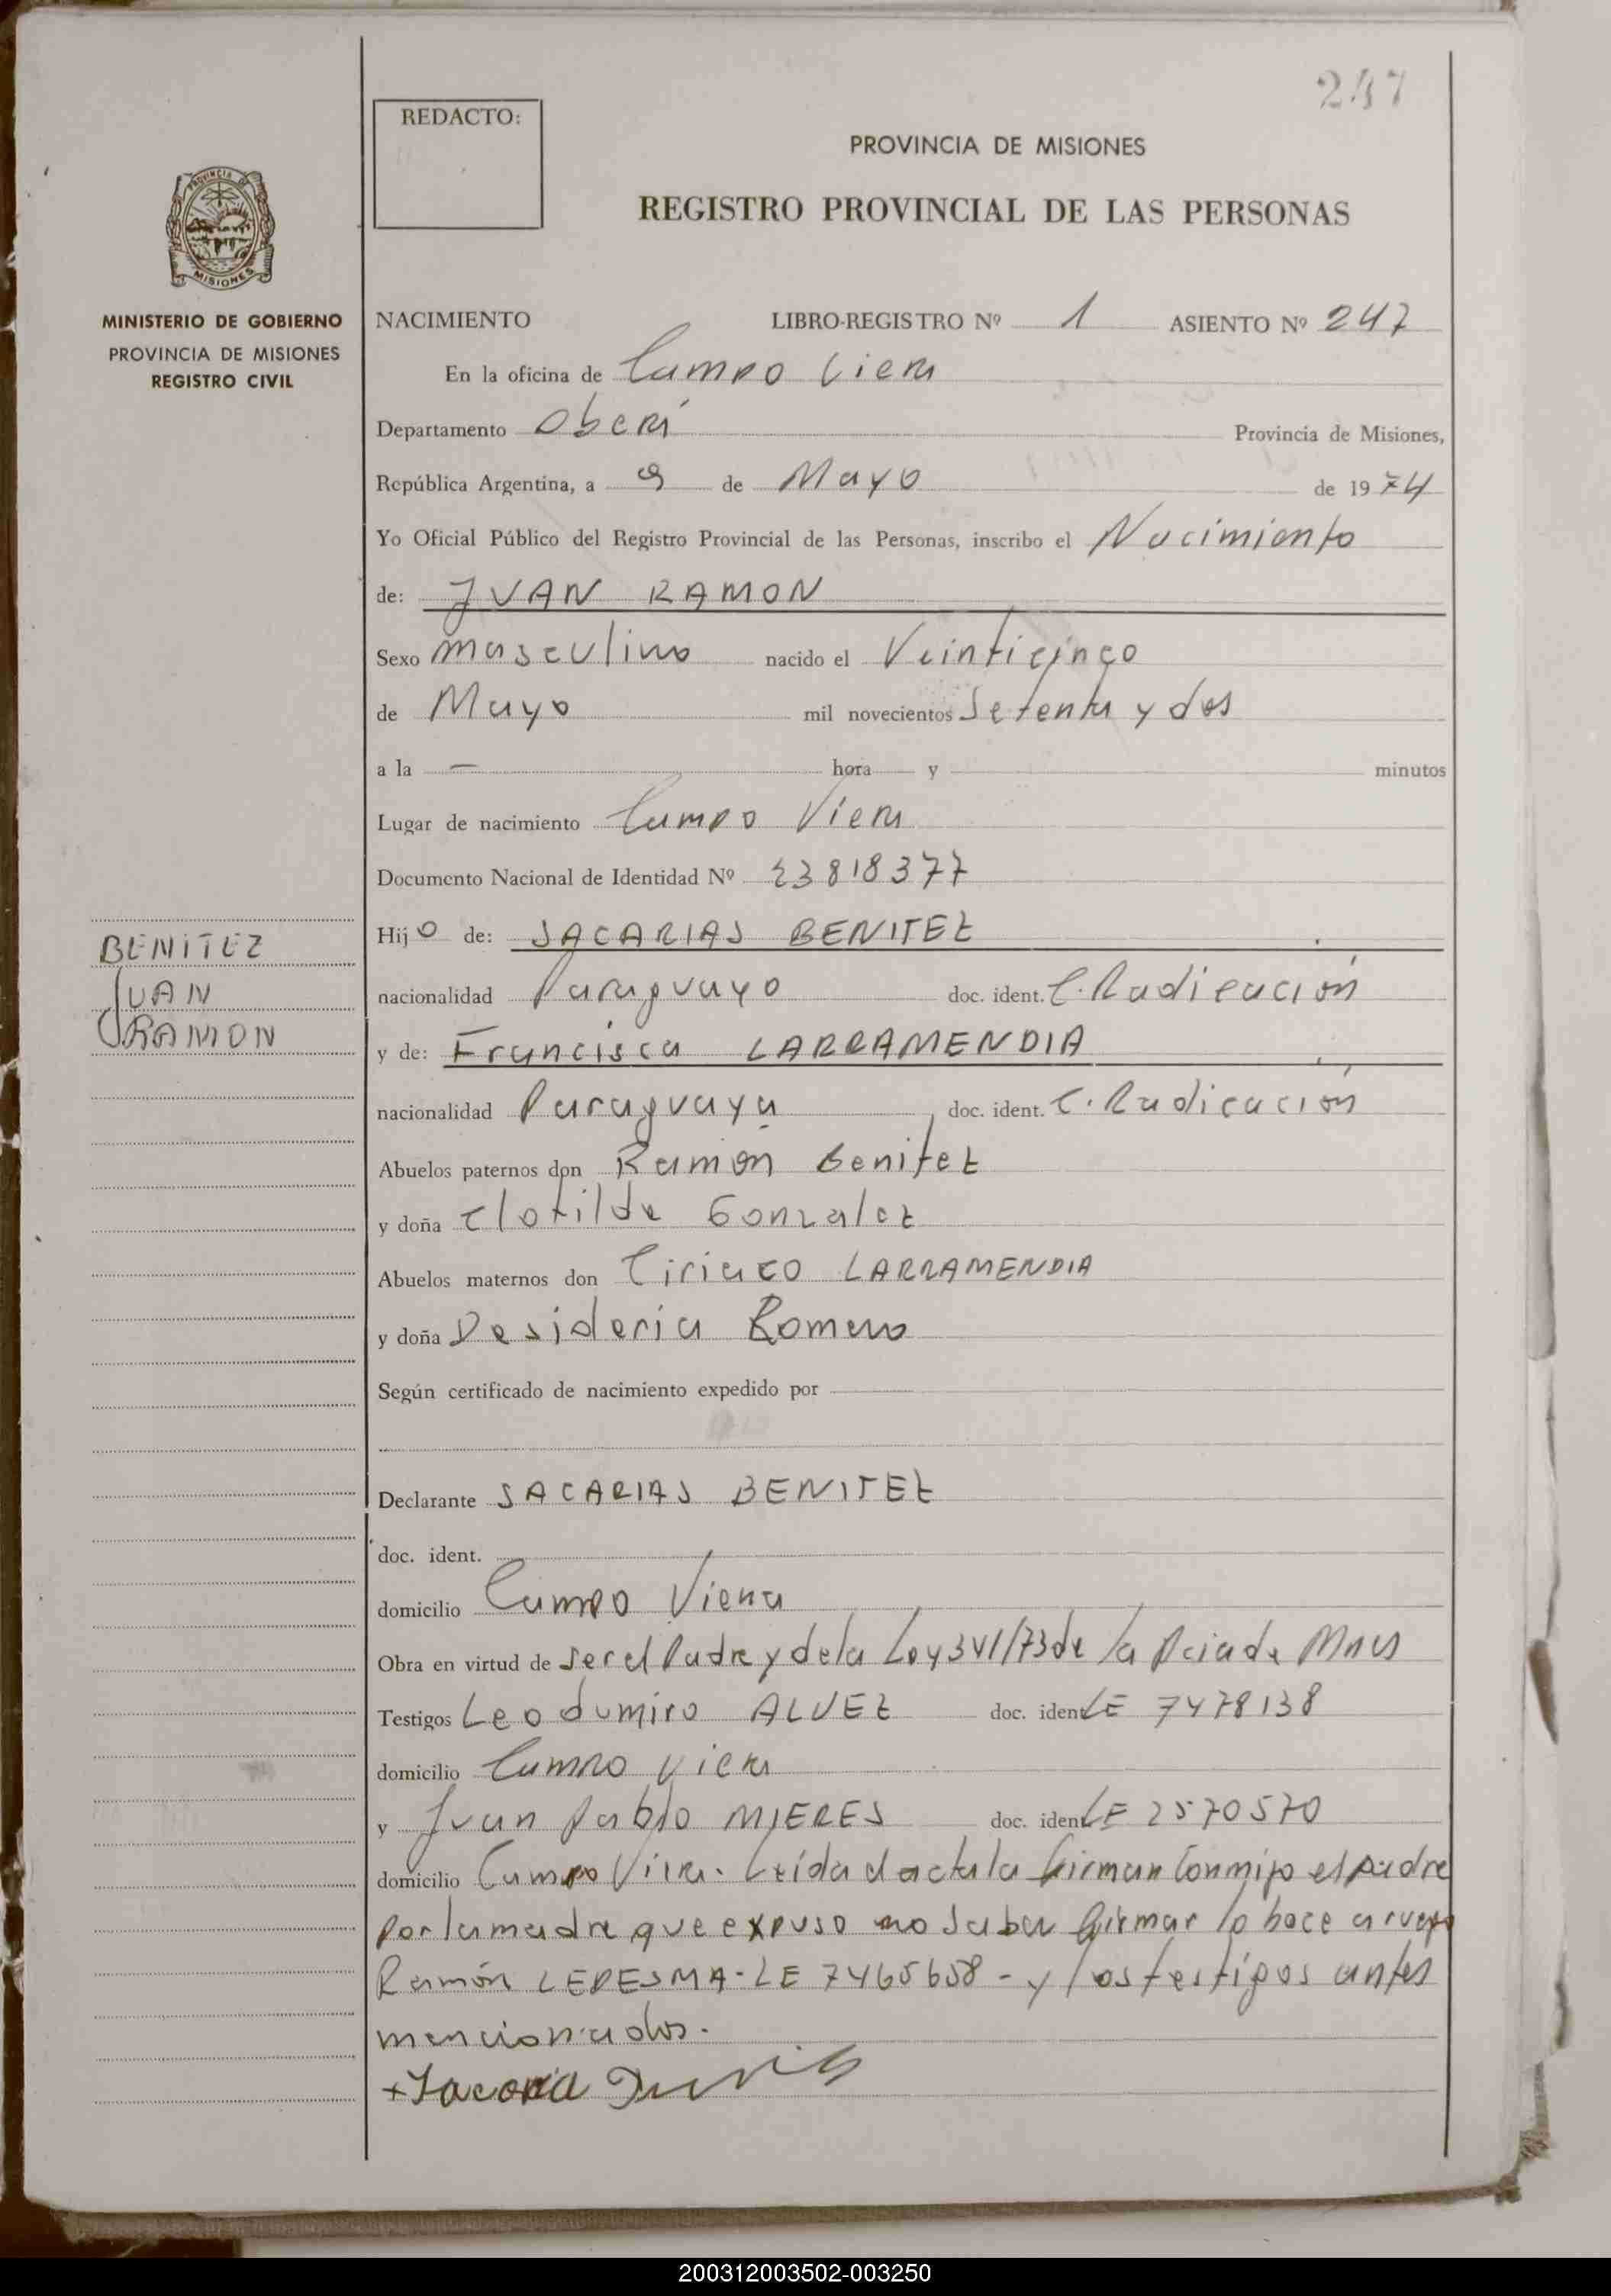 247
REDACTO:
PROVINCIA DE MISIONES
REGISTRO PROVINCIAL DE LAS PERSONAS
PROVINCIA DE
MISIONES
MINISTERIO DE GOBIERNO
PROVINCIA DE MISIONES
REGISTRO CIVIL
NACIMIENTO LIBRO-REGISTRO Nº 1 ASIENTO Nº 247
En la oficina de Campo Viera
Departamento Oberá Provincia de Misiones,
República Argentina, a 9 de Mayo de 1974
Yo Oficial Público del Registro Provincial de las Personas, inscribo el Nacimiento
de: JUAN RAMON
Sexo masculino nacido el Veinticinco
de Mayo mil novecientos setenta y dos
a la — hora y minutos
Lugar de nacimiento Campo Viera
Documento Nacional de Identidad Nº 23818377
Hijo de: SACARIAS BENITEZ
nacionalidad Paraguayo doc. ident. C. Radicación
y de: Francisca LARRAMENDIA
nacionalidad Paraguaya doc. ident. C. Radicación
Abuelos paternos don Ramón Benitez
y doña Clotilde Gonzalez
Abuelos maternos don Ciriaco LARRAMENDIA
y doña Desideria Romero
Según certificado de nacimiento expedido por
Declarante SACARIAS BENITEZ
doc. ident.
domicilio Campo Viera
Obra en virtud de ser el Padre y de la Ley 341/73 de la Pcia de Mnes
Testigos Leodumiro ALVEZ doc. ident LE 7478138
domicilio Campo Viera
y Juan Pablo MIERES doc. ident LE 2570570
domicilio Campo Viera. Leída el acta la firman conmigo el padre
por la madre que expuso no saber firmar lo hace a ruego
Ramón LEDESMA - LE 7465658 - y los testigos antes
mencionados.
BENITEZ
JUAN
RAMON
200312003502-003250